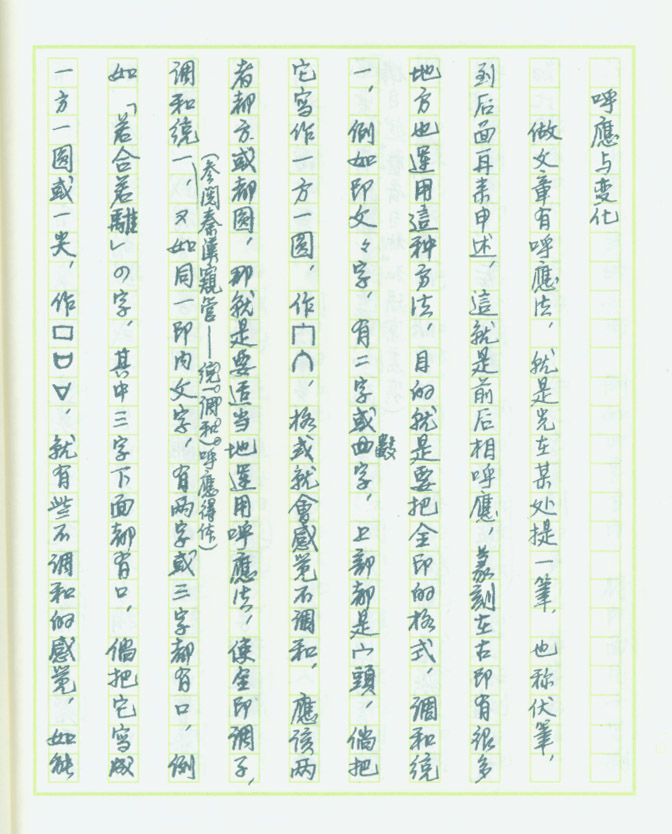 呼應与变化
做文章有呼應法，就是先在某处提一筆，也称伏筆，
到后面再来申述，這就是前后相呼應，篆刻在古印有很多
地方也運用這种方法，目的就是要把全印的格式，調和統
一，例如印文々字，有二字或數字，上部都是宀頭，倘把
它写作一方一圆，作冂∩，格式就會感觉不調和，應该两
者都方或都圆，那就是要适当地運用呼應法，使全印調子，
調和統一，又如同一印内文字，有两字或三字都有口，例
（参阅秦漢窺管——統一調和）呼應得体）
如「若合若離」の字，其中三字下面都有口，倘把它写成
一方一圆或一尖，作口，就有些不調和的感觉，如能